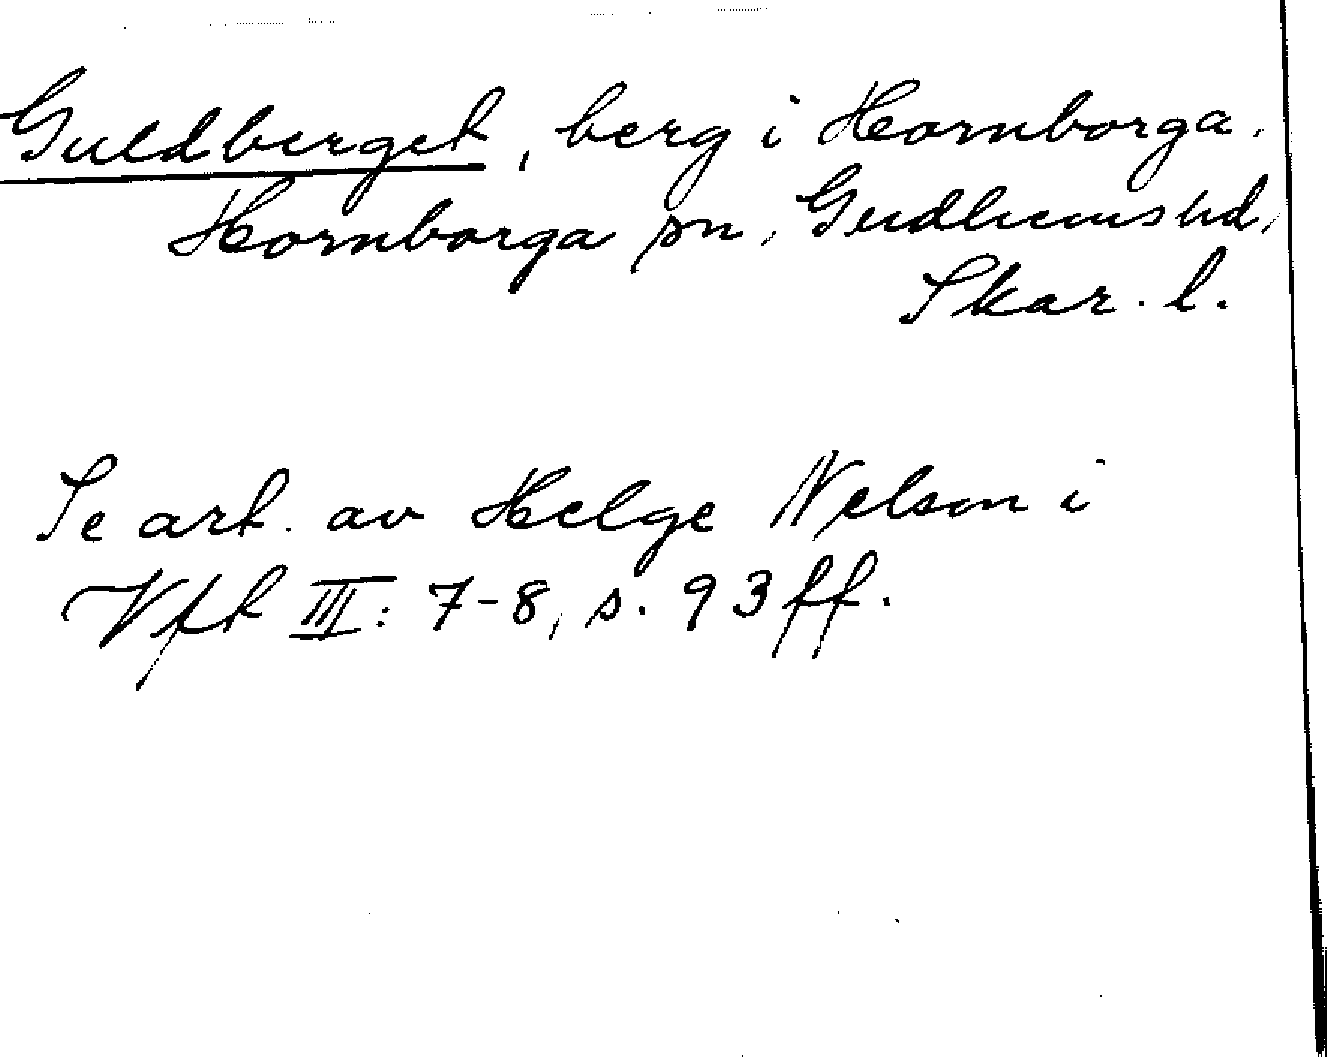 Guldberget, berg i Hornborga.
Hornborga sn, Gudhems hd,
Skar. l.
Se art. av Helge Nelson i
Vft III: 7-8, s. 93 ff.